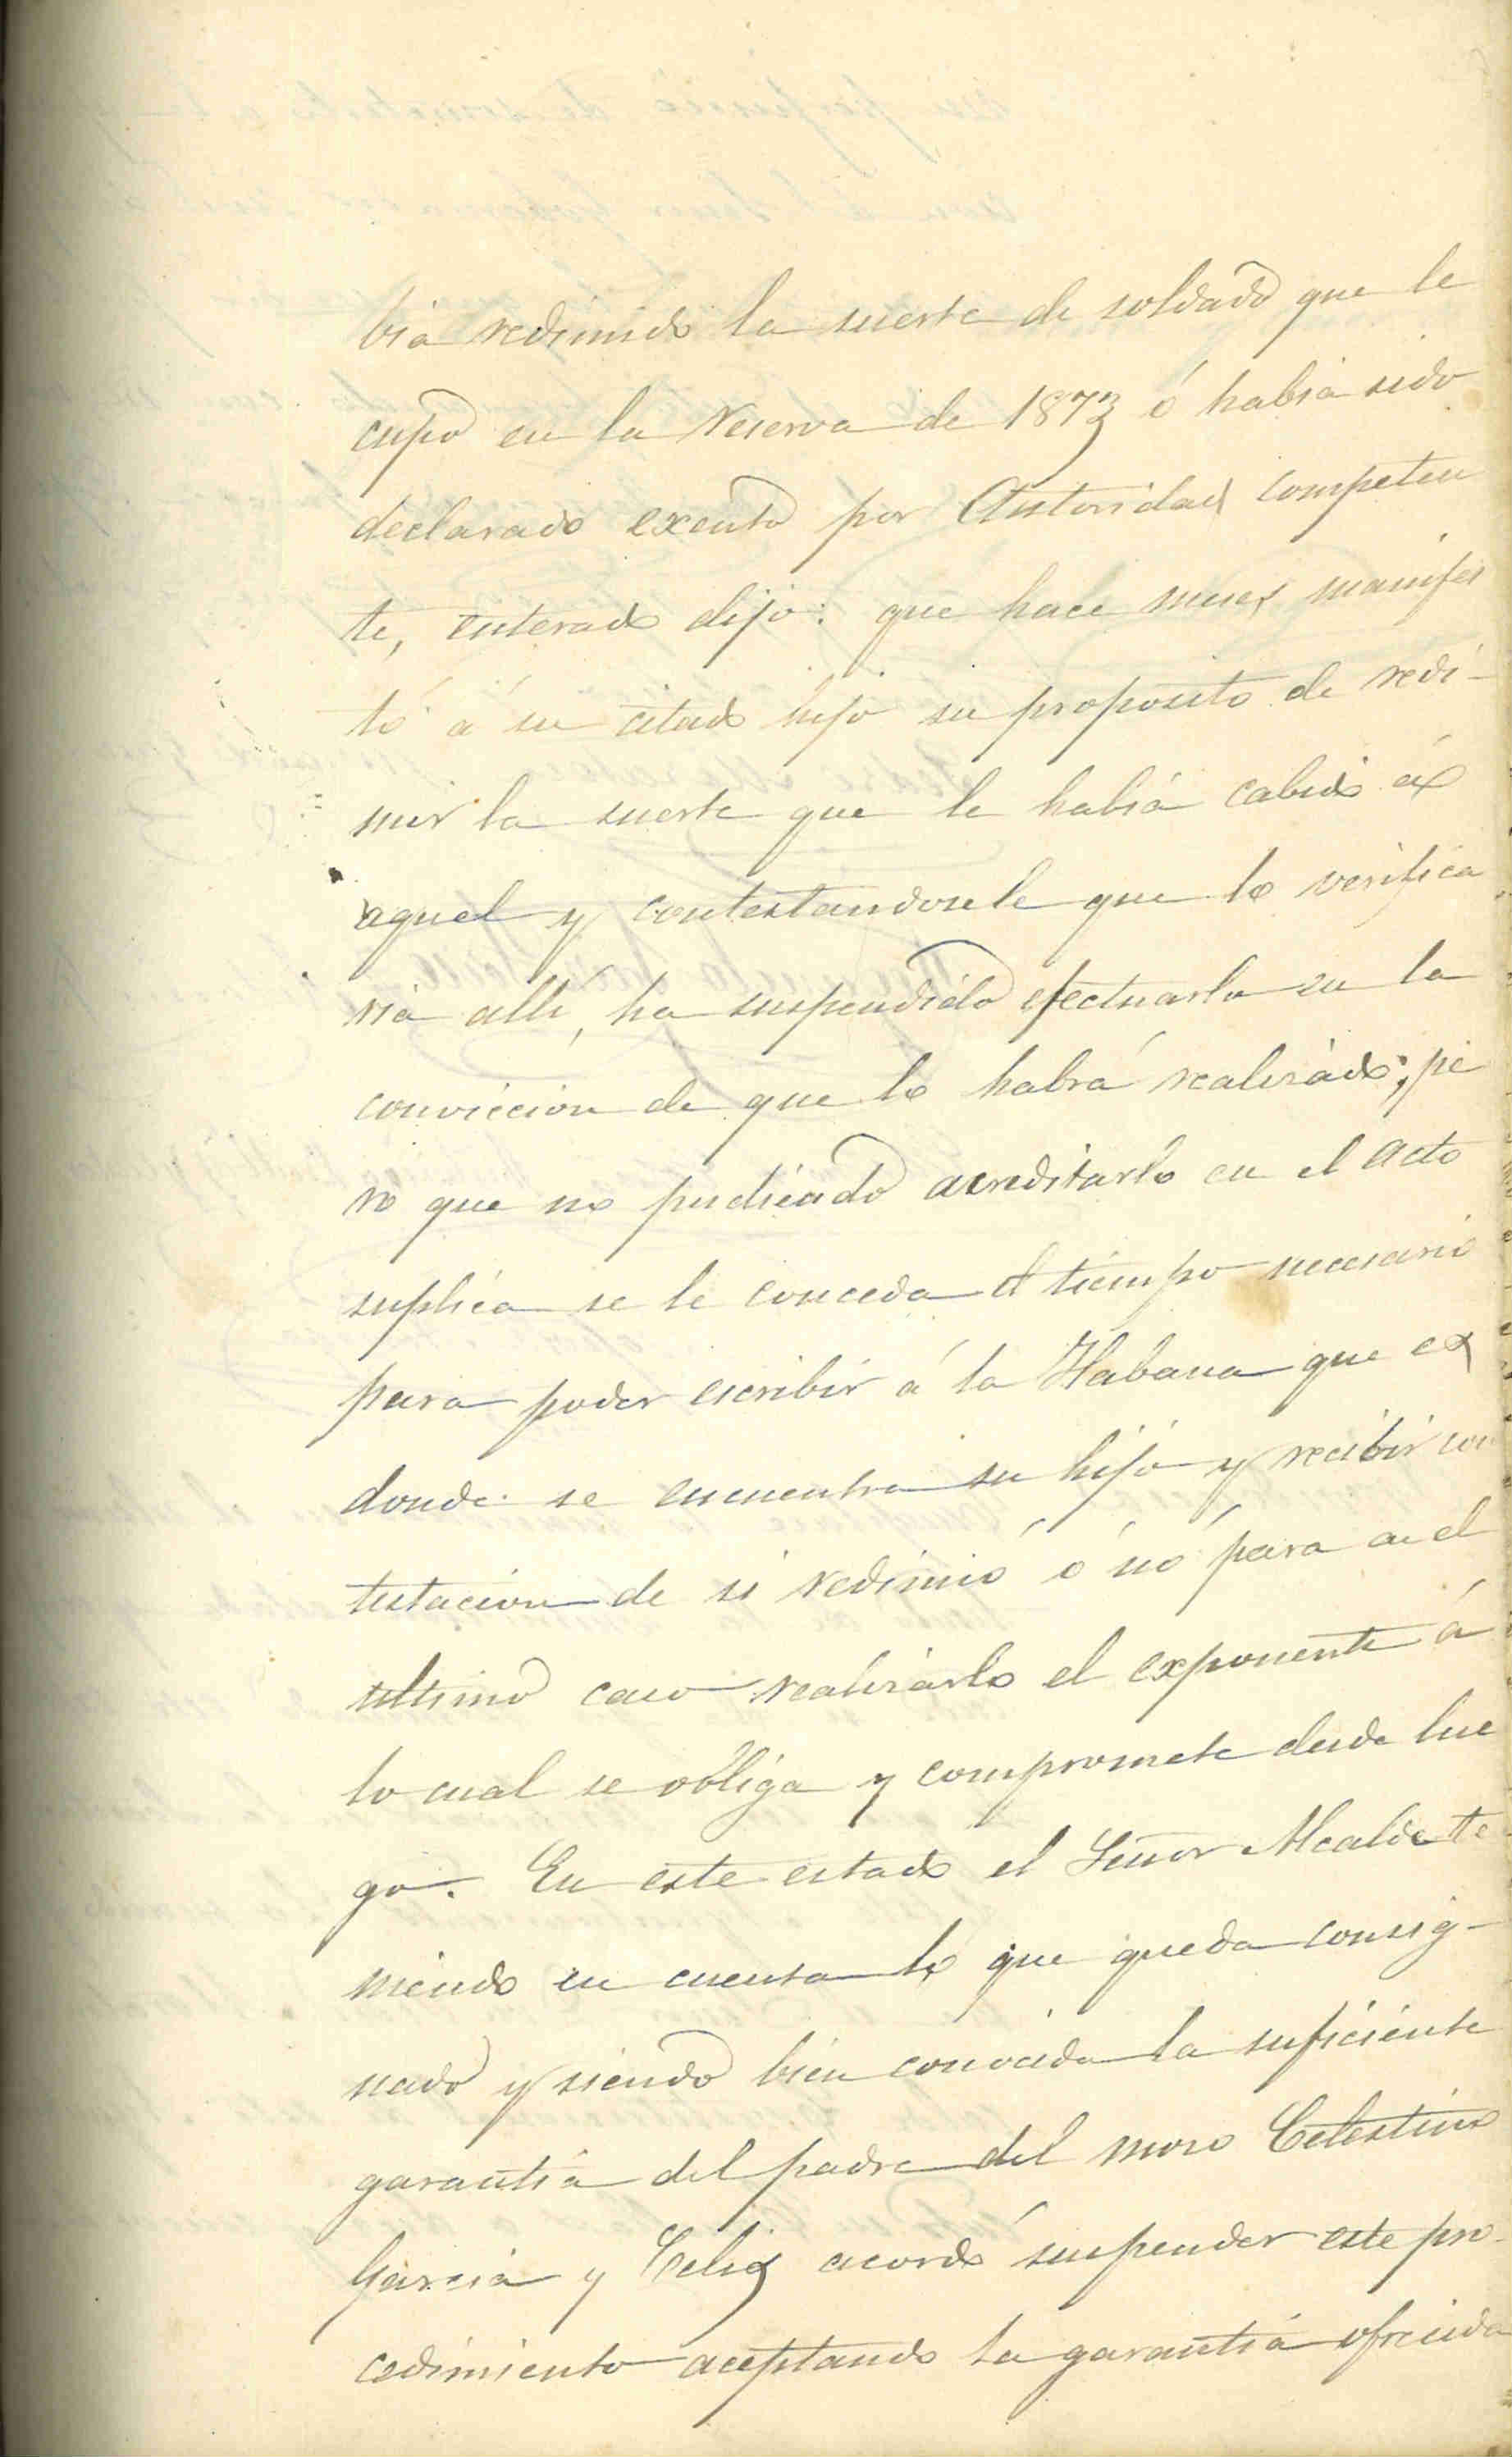 bia redimido la suerte de soldado que le
cupo en la Reserva de 1873 ó habia sido
declarado exento por Autoridad competen
te, enterado dijo: que hace meses manifes
tó á su citado hijo su proposito de redi-
mir la suerte que le habia cabido á
aquel y contestandosele que lo verifica
ria allí, ha suspendido efectuarlo en la
convicción de que lo habrá realizado; pe
ro que no pudiendo acreditarlo en el acto
suplica se le conceda el tiempo necesario
para poder escribir á la Habana que es
donde se encuentra su hijo y recibir con
testacion de si redimió ó nó para en el
ultimo caso realizarlo el exponente á
lo cual se obliga y compromete desde lue
go. En este estado el Señor Alcalde te
niendo en cuenta lo que queda consig-
nado y siendo bien conocida la suficiente
garantia del padre del mozo Celestino
Garcia y Celis acordó suspender este pro-
cedimiento aceptando la garantia ofrecida